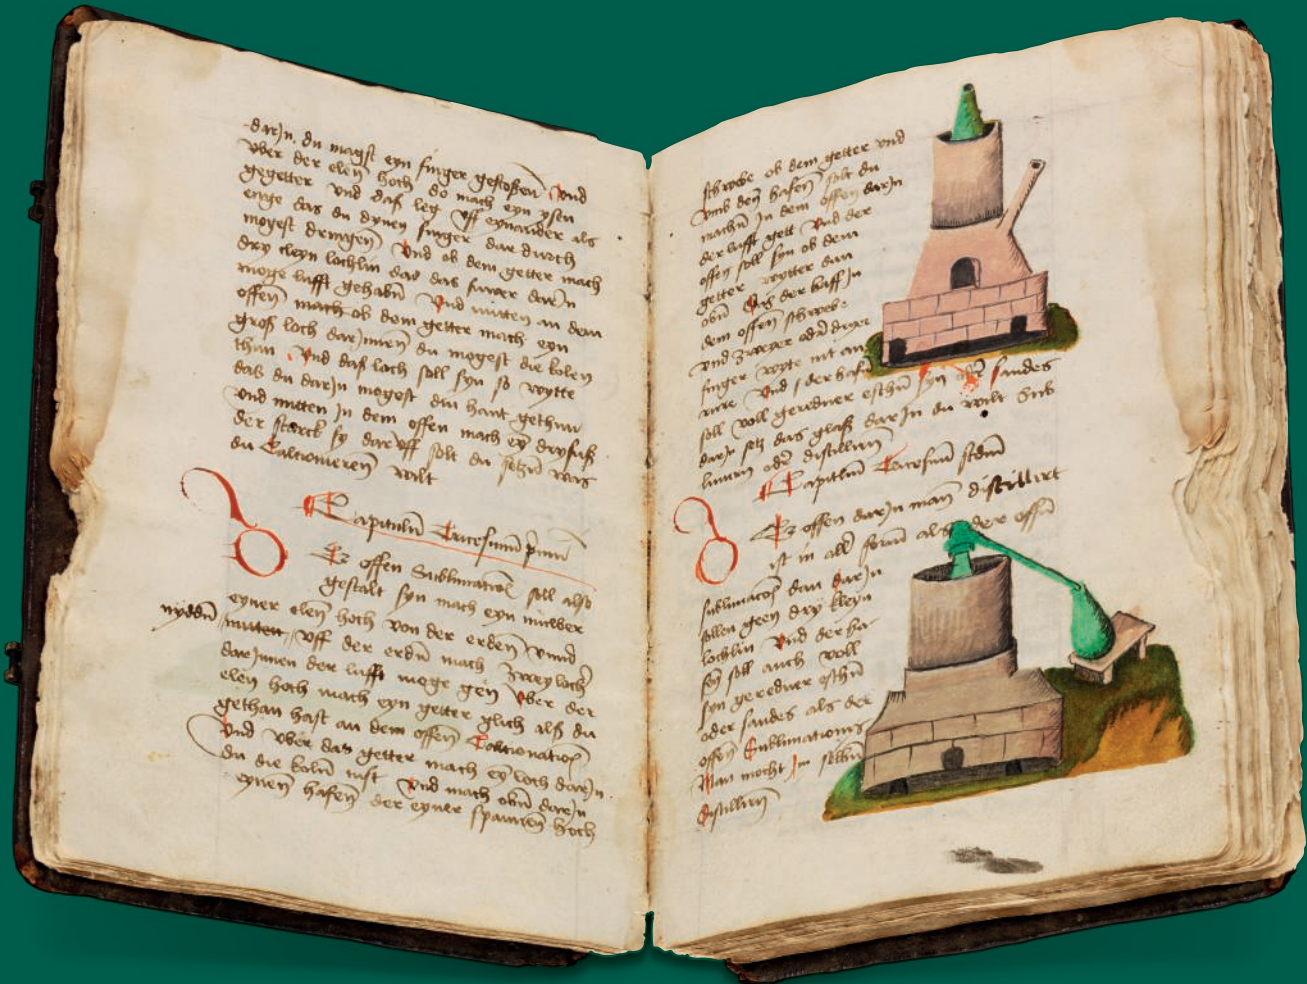 darJn. du magst eyn finger gestoßen Vnd
Vber der elen hoch do mach eyn ysen
gegetter vnd das leg vff eynander als
enge das du dynen finger dar durch
mogest drengen Vnd ob dem getter mach
dry cleyn lochlin das das fuwer darJn
moge lufft gehaben Vnd mitten an dem
offen mach ob dem getter mach eyn
groß loch darJnnen du mogest die kolen
thun Vnd daß loch soll syn so wytte
das du darJn mogest din hant gethun
Vnd mitten Jn dem offen mach ey dryfuß
der starck sy dar vff solt du setzen was
du Calcionieren wilt
Capitulum Tricesimum primum
offen Sublimacion soll also
gestalt syn mach eyn muwer
eyner elen hoch von der erden vnnd
nydden mitten vff der erden mach zwey locher
darJnnen der lufft moge gen Vber der
elen hoch mach eyn getter glich alß du
gethan hast an dem offen Calcionacion
Vnd vber das getter mach ey loch darJn
du die kolen tust Vnd mach oben darJn
eynen hafen der eyner spannen hoch
schwebe ob dem getter vnd
vmb den hafen solt du
machen Jn dem offen darJn
der lufft gett Vnd der
offen soll syn ob dem
getter wytter dan
oben Das der haff Jn
dem offen schwebe
vnd zweyer oder dryer
finger wyte nit an
rure Vnd der hafen
soll voll geredner eschen syn oder sandes
darJn setz das glaß dar Jn du wilt Sub
limiren oder distillieren
Capitulum Tricesimum secundum
offen darJn man distillirt
ist in aller form als der offen
sublimacion dan darJn
sollen geen dry kleyn
lochlin Vnd der ha-
fen soll auch voll
syn geredner eschen
oder sandes als der
offen Sublimationis
Man mocht Jn selben
distilliren